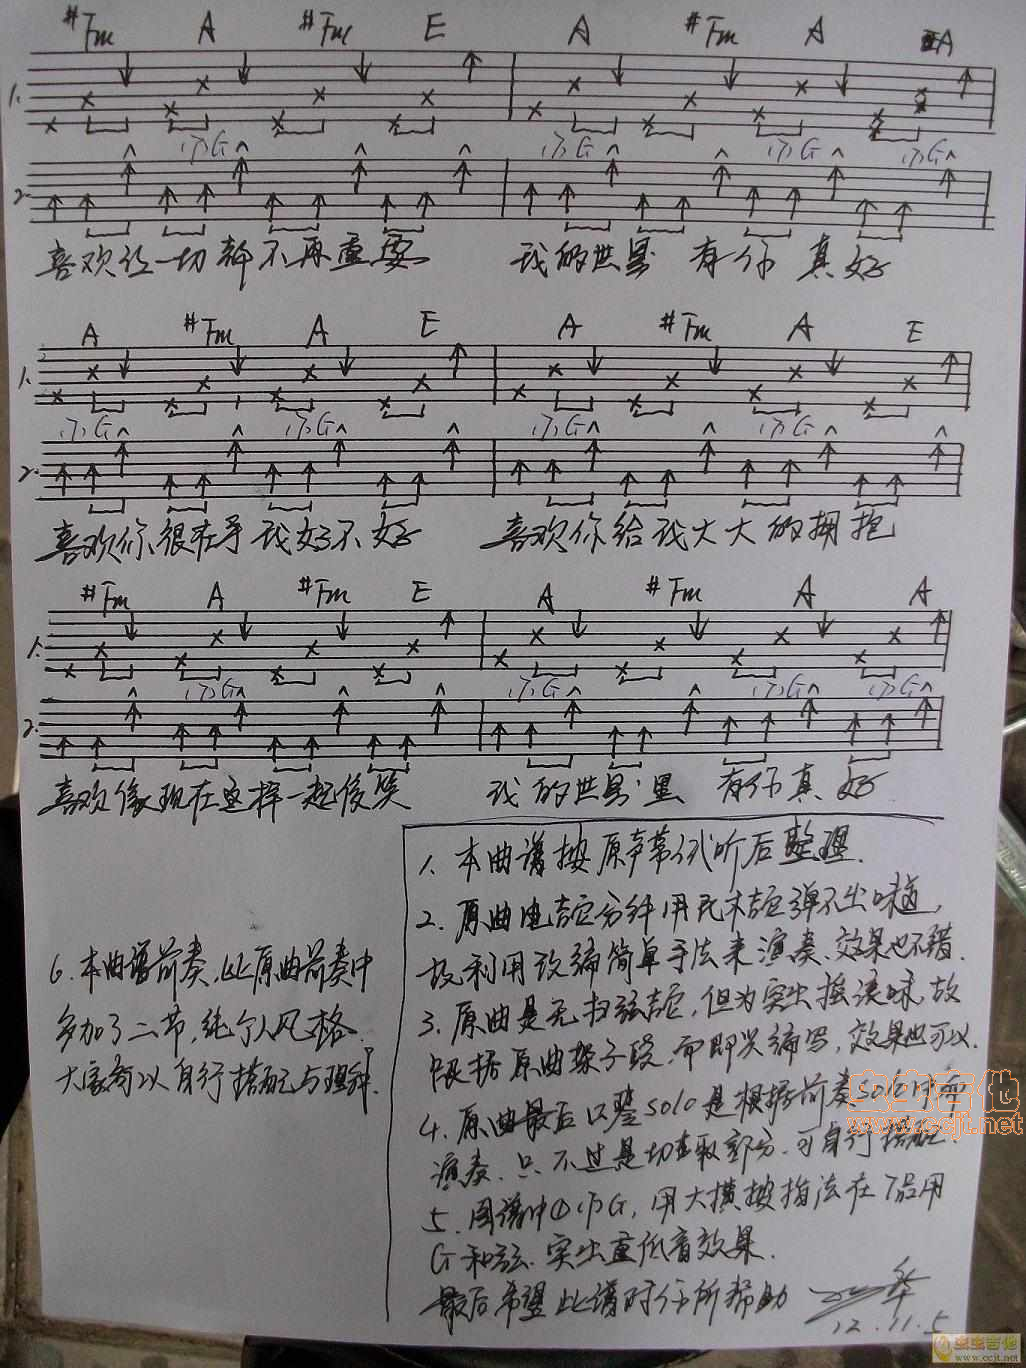 #Fm A #Fm E A #Fm A A
1.
(下)G (下)G (下)G (下)G
2.
喜欢让一切都不再重要 我的世界 有你 真好
A #Fm A E A #Fm A E
1.
(下)G (下)G (下)G (下)G
2.
喜欢你很在乎我好不好 喜欢你给我大大的拥抱
#Fm A #Fm E A #Fm A A
1.
(下)G (下)G (下)G (下)G
2.
喜欢像现在这样一起傻笑 我的世界里 有你真好
1. 本曲谱按原声带试听后整理.
2. 原曲电吉它分解用民木吉它弹不出味道,
故利用改编简单手法来演奏、效果也不错.
3. 原曲是无扫弦吉它,但为突出摇滚味,故
根据原曲架子段.而即兴编写,效果也可以.
4. 原曲最后只是solo是根据前奏solo中
演奏.只不过是切取部分.可自行搭配
5. 图谱中(下)G,用大横按指法在7品用
G和弦.突出重低音效果.
最后希望此谱对你所帮助
华
12.11.5
6. 本曲谱前奏,比原曲前奏中
多加了二节,纯个人风格.
大家可以自行搭配与理解
虫虫吉他
www.ccjt.net
虫虫吉他
www.ccjt.net